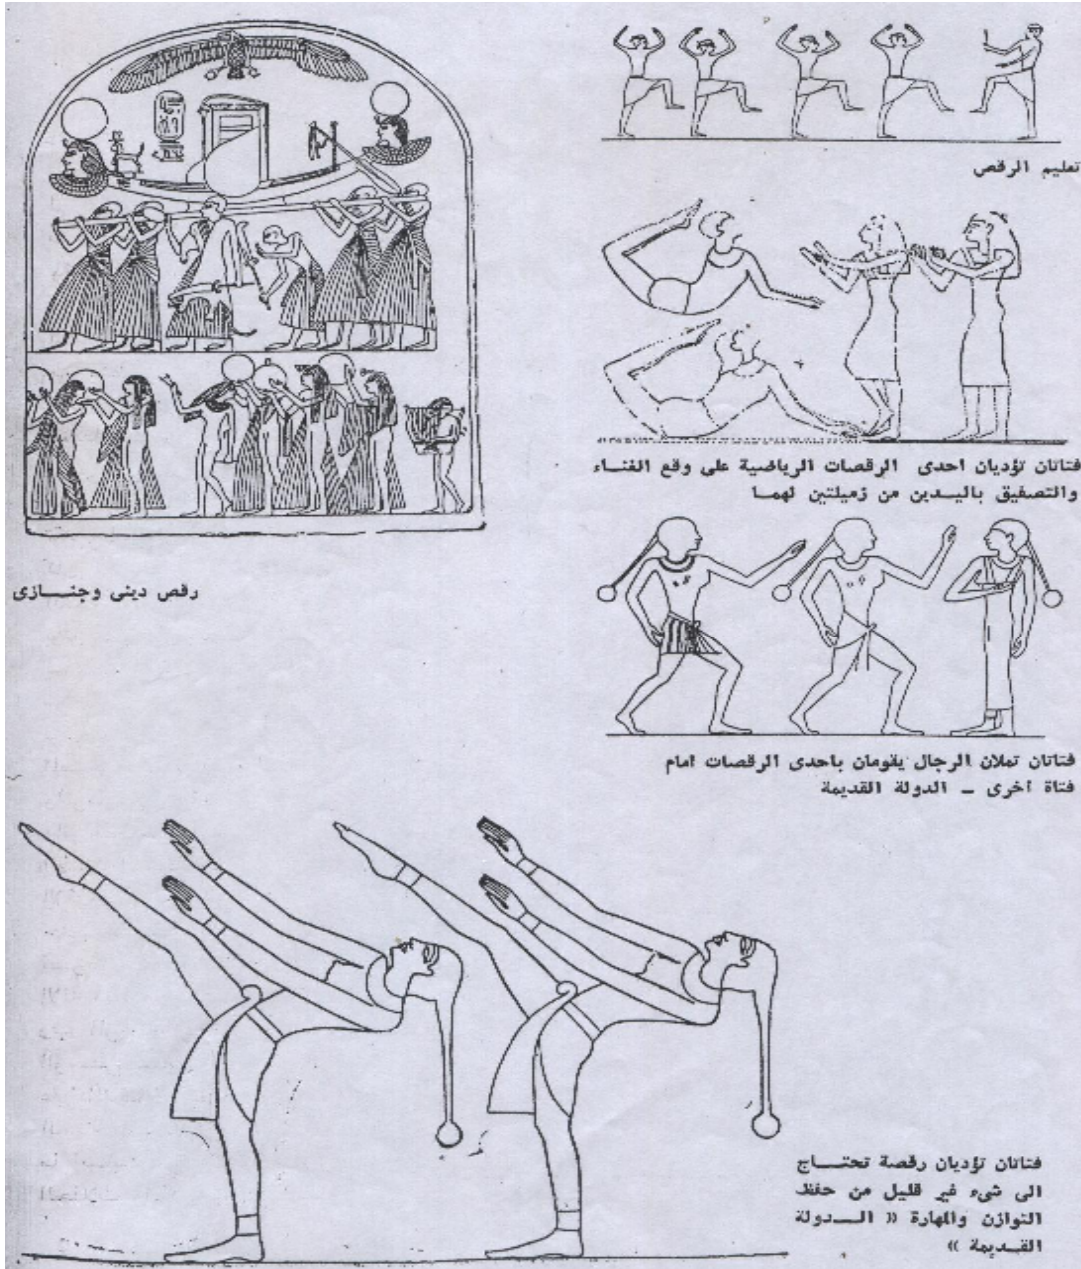 تعليم الرقص
فتاتان تؤديان احدى الرقصات الرياضية على وقع الغنـــاء
والتصفيق باليـــدين من زميلتين لهمـــا
رقص دينى وجنـــازى
فتاتان تمثلان الرجال يقومان باحدى الرقصات امام
فتاة أخرى ــ الدولة القديمة
فتاتان تؤديان رقصة تحتـــاج
الى شىء غير قليل من حفظ
التوازن والمهارة « الـــدولة
القـــديمة »